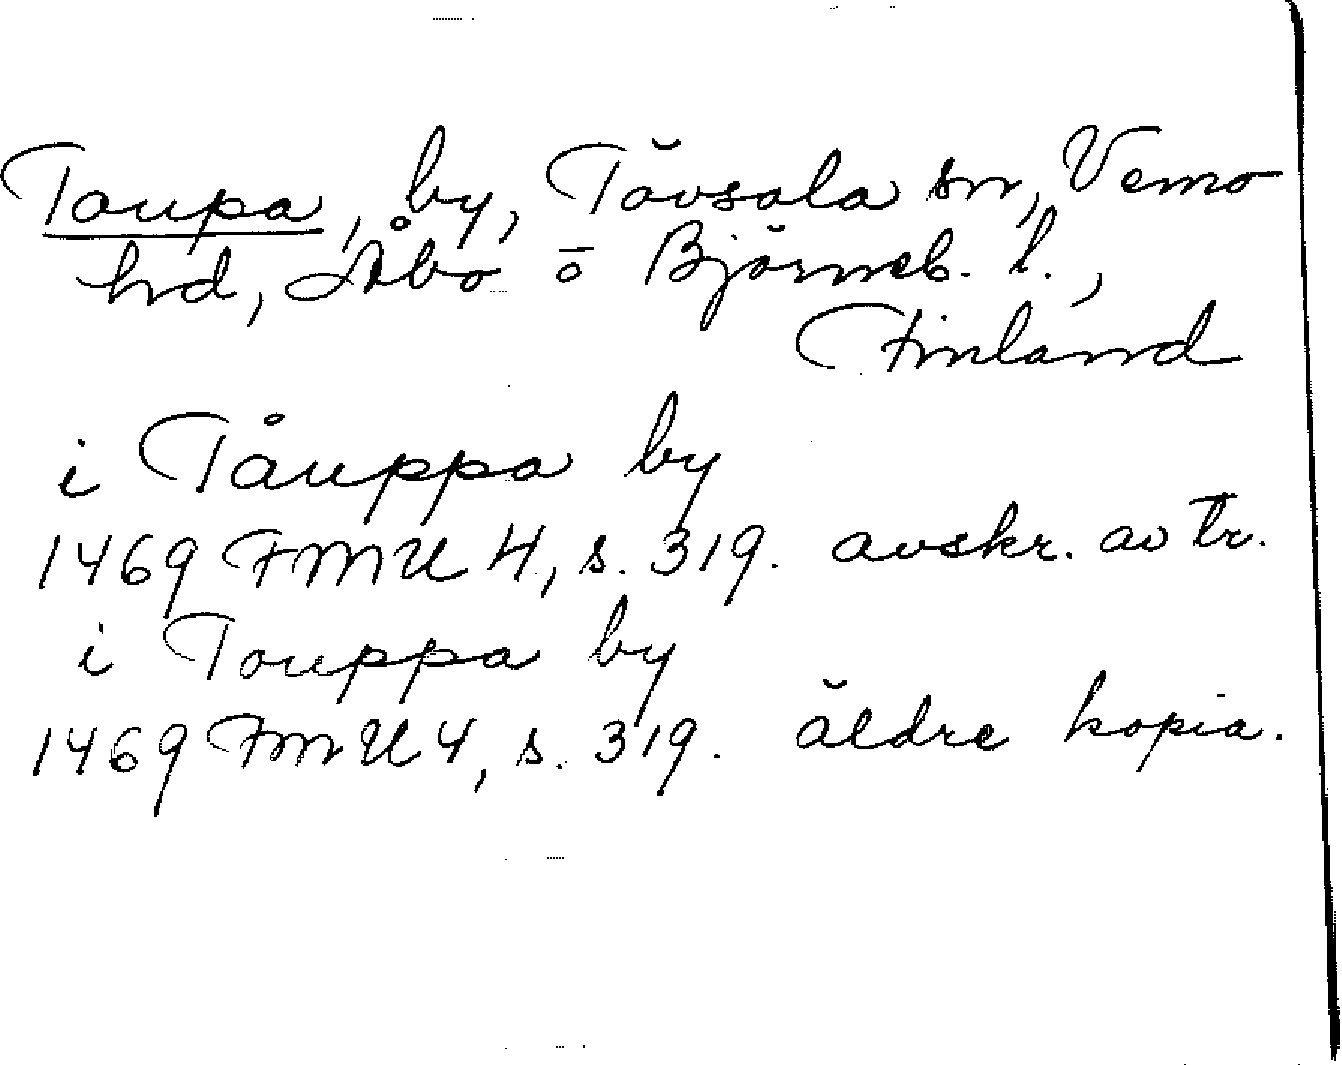 Taupa, by, Tövsala sn, Vemo
hd, Åbo o Björneb. l.,
Finland
i Tåuppa by
1469 FMU 4, s. 319. avskr. av tr.
i Touppa by
1469 FMU 4, s. 319. äldre kopia.